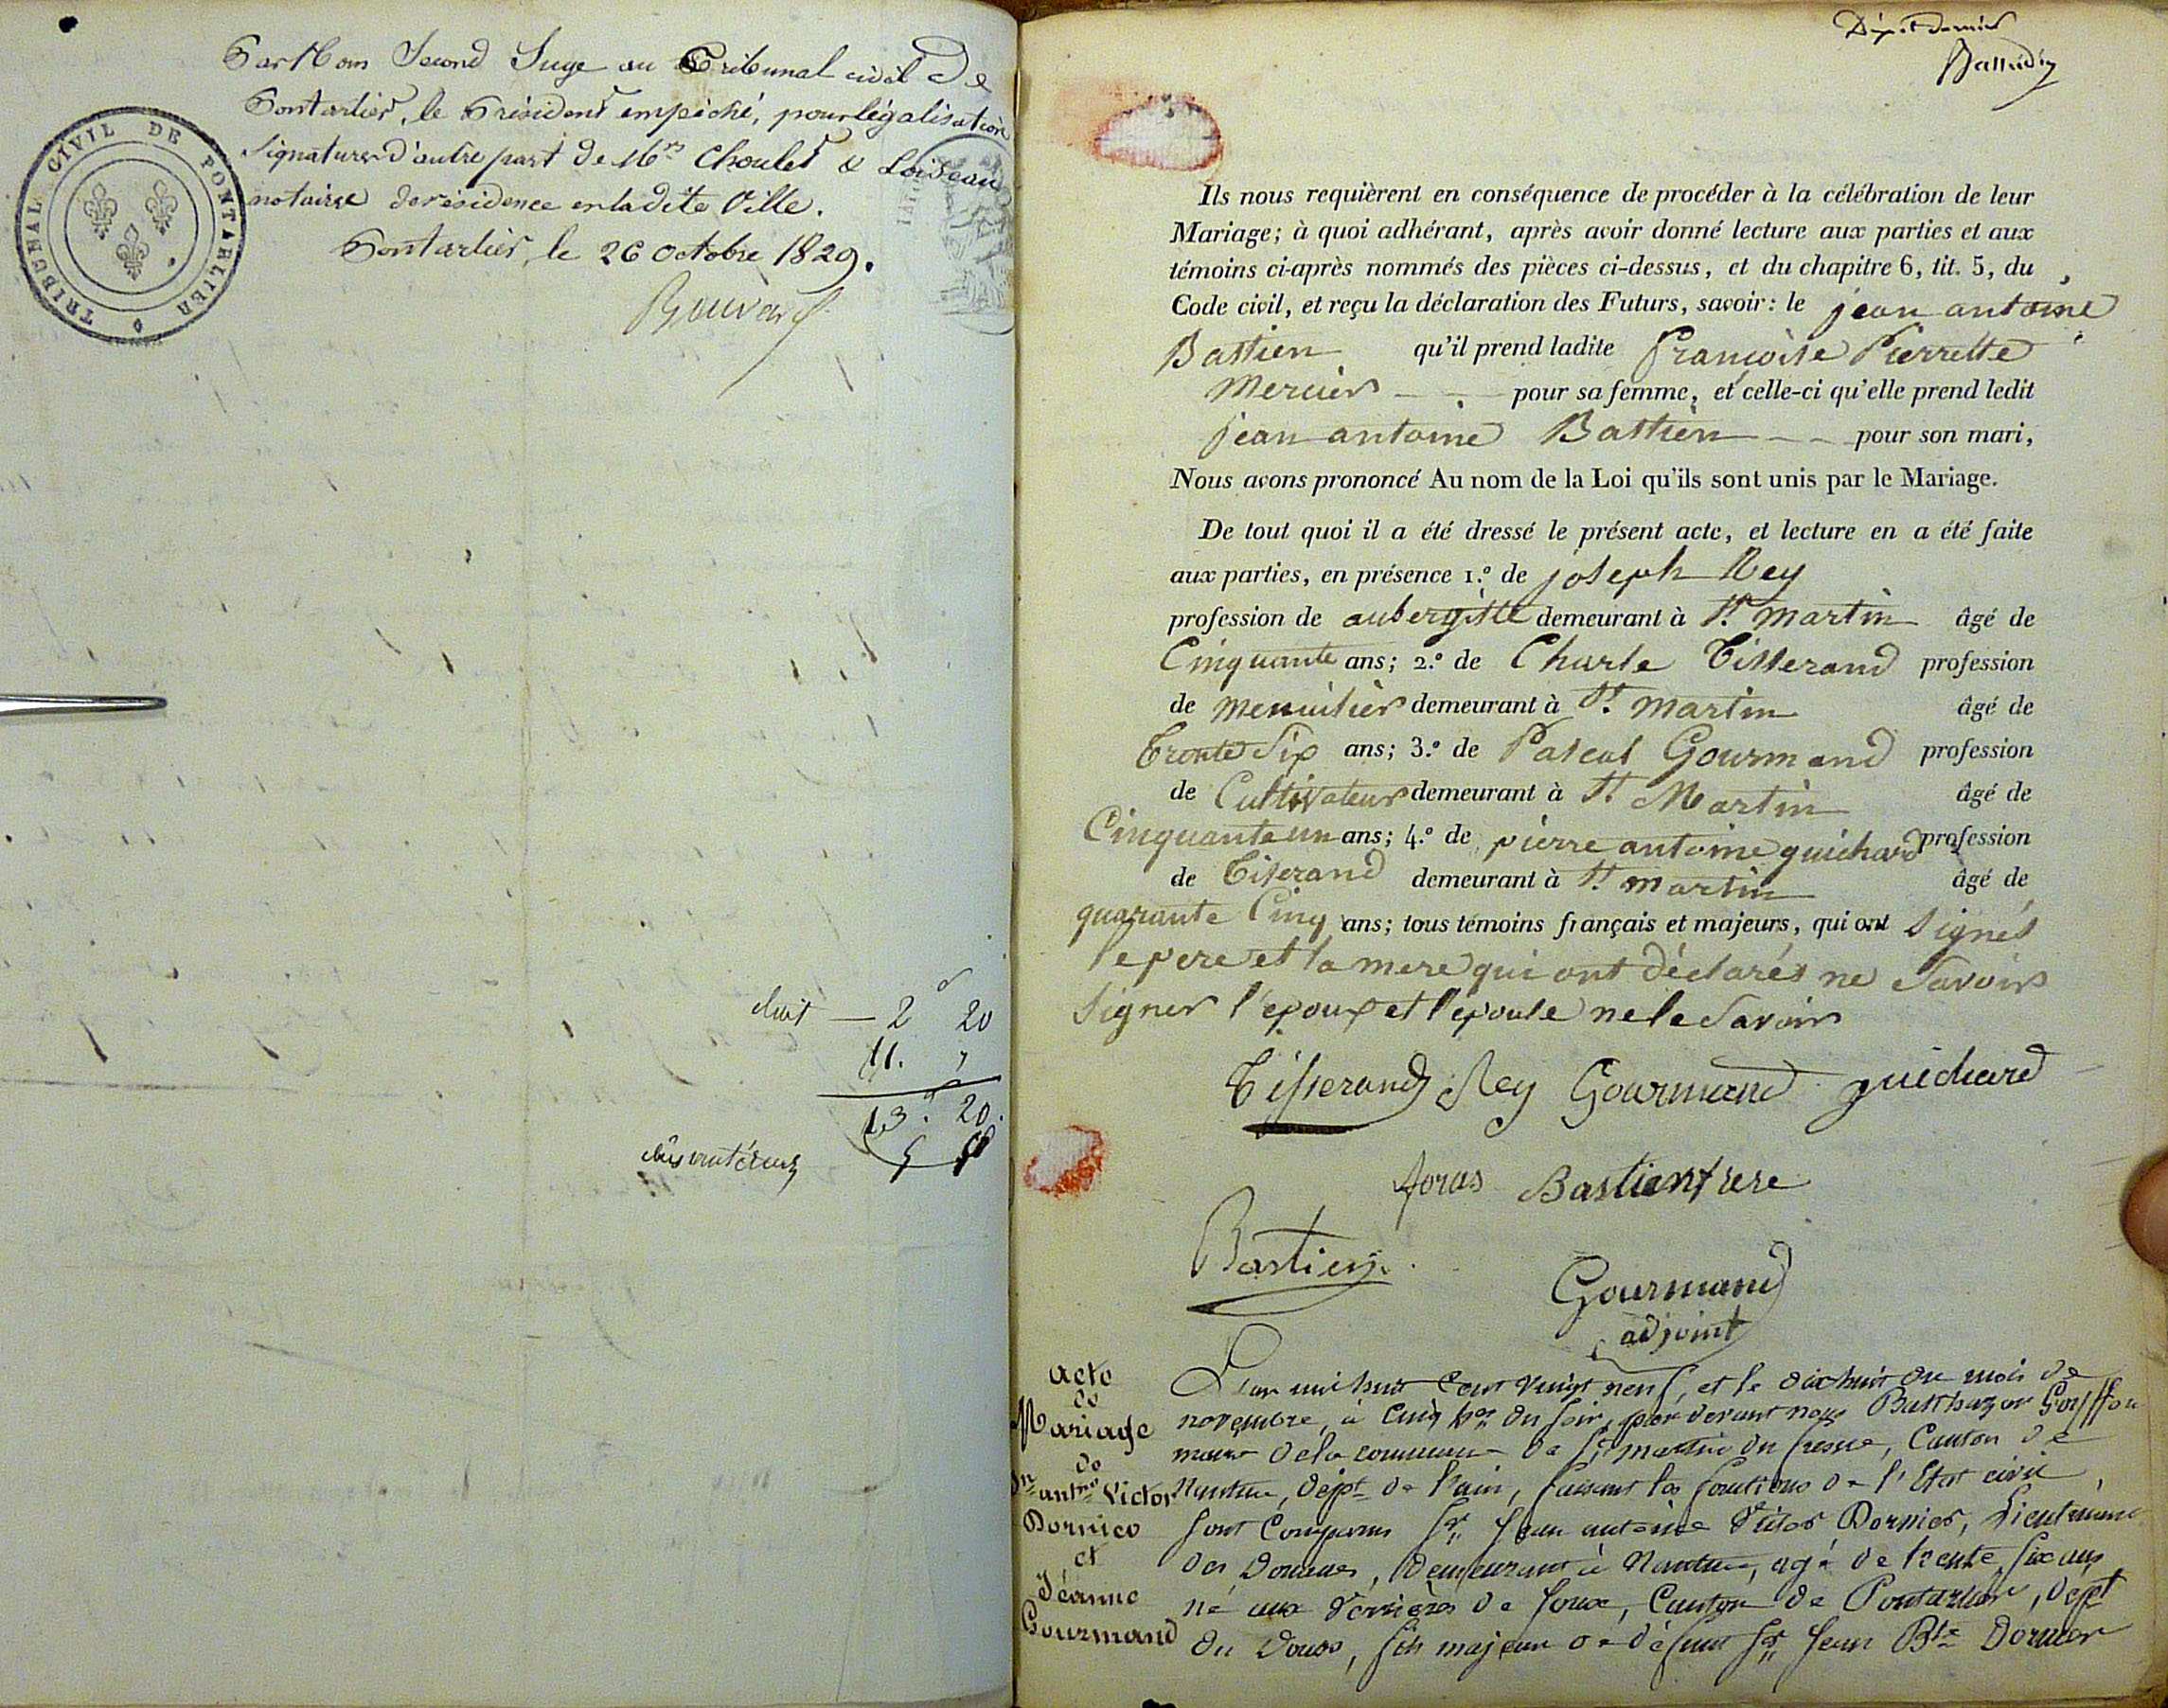 Par Nous Second Juge au Tribunal civil De
Pontarlier, le Président empêché, pour légalisation
signatures d'autre part de Mrs Choulet & Loiseau
notaires de résidence en ladite Ville.
Pontarlier, le 26 Octobre 1829.
TRIBUNAL CIVIL DE PONTARLIER
droit — 2 20
11.
13. 20.
Ils nous requièrent en conséquence de procéder à la célébration de leur
Mariage; à quoi adhérant, après avoir donné lecture aux parties et aux
témoins ci-après nommés des pièces ci-dessus, et du chapitre 6, tit. 5, du
Code civil, et reçu la déclaration des Futurs, savoir: le jean antoine
Bastien qu'il prend ladite françoise Pierrette
Mercier pour sa femme, et celle-ci qu'elle prend ledit
jean antoine Bastien pour son mari,
Nous avons prononcé Au nom de la Loi qu'ils sont unis par le Mariage.
De tout quoi il a été dressé le présent acte, et lecture en a été faite
aux parties, en présence 1.º de joseph Rey
profession de aubergiste demeurant à St. martin âgé de
Cinquante ans; 2.º de Charle Tisserand profession
de menuisier demeurant à St. martin âgé de
Trente Six ans; 3.º de Pascal Gourmand profession
de Cultivateur demeurant à St. Martin âgé de
Cinquante un ans; 4.º de pierre antoine guichard profession
de Tiserand demeurant à St. martin âgé de
quarante Cinq ans; tous témoins français et majeurs, qui ont Signés
le pere et la mere qui ont déclarés ne Savoir
Signer l'epoux et l'epouse ne le Savoir
Tisserand Rey Gourmand guichard
foras Bastien frere
Bastien
Gourmand
adjoint
acte
de
Mariage
de
Jn antne Victor
Dornier
et
Jéanne
Gourmand
L'an mil huit Cent vingt neuf, et le dix huit du mois de
novembre, à Cinq hres du soir, par devant nous Balthazar
maire de la commune de St martin du fresne, Canton de
Nantua, dépt de l'ain, faisant les fonctions de l'Etat civil,
sont Comparus Sr Jean antoine Victor Dornier, Lieutenant
des Douanes, demeurant à Nantua, agé de trente six ans
né aux Verrières de Joux, Canton de Pontarlier, dept
du Doubs, fils majeur de défunt Sr Jean Bte Dornier